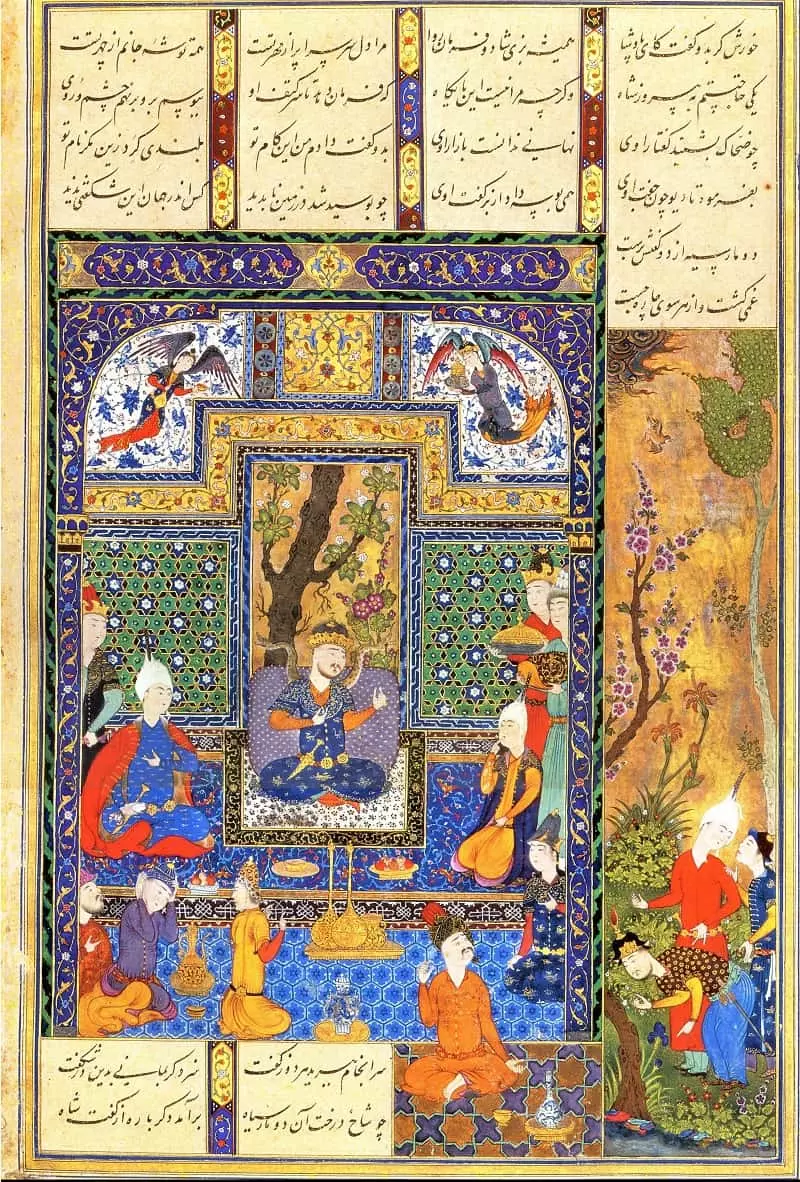 خورش گر بدو گفت کای پادشا همیشه بزی شاد و فرمان روا مرا دل سراسر پر از مهر تست همه توشه جانم از چهر تست
یکی حاجتستم به پیروز شاه وگرچه مرا نیست این پایگاه که فرمان دهد تا سر کتف او ببوسم برو برنهم چشم و روی
چو ضحاک بشنید گفتار اوی نهانی ندانست بازار اوی بدو گفت دادم من این کام تو بلندی گیرد زین مگر نام تو
بفرمود تا دیو چون جفت اوی همی بوسه داد از بر کفت اوی چو بوسید شد در زمین ناپدید کس اندر جهان این شگفتی ندید
دو مار سیه از دو کتفش برست
غمی گشت و از هر سوی چاره جست
سرانجام ببرید هر دو ز کفت سزد گر بمانی بدین در شگفت
چو شاخ درخت آن دو مار سیاه برآمد دگر باره از کفت شاه